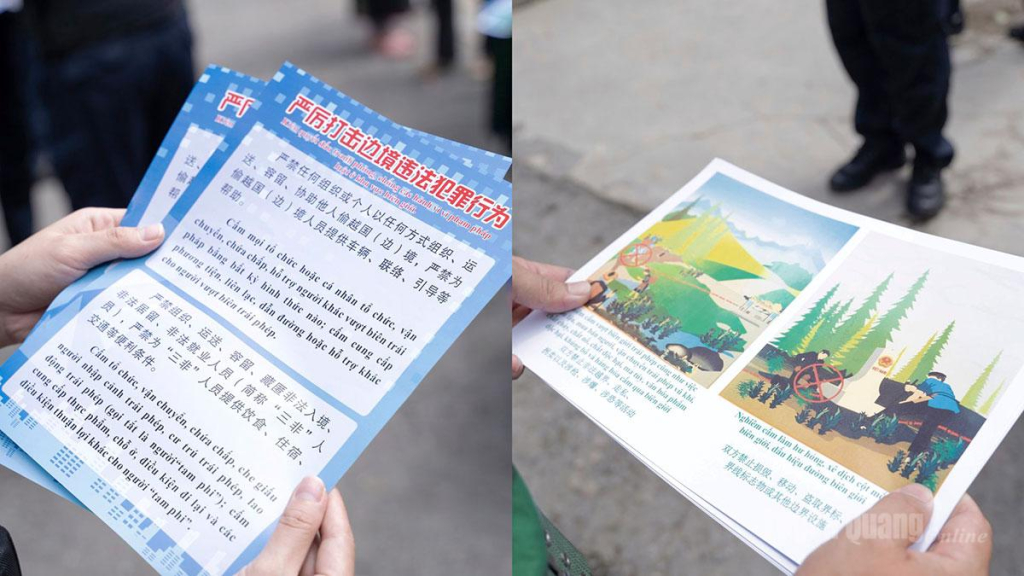 严厉打击边境违法犯罪行为
严禁任何组织或个人以任何方式组织、运
送、容留、协助他人偷越国（边）境，严禁为
偷越国（边）境人员提供车辆、联络、引导等
帮助。
Cấm mọi tổ chức hoặc cá nhân tổ chức, vận
chuyển chứa chấp, hỗ trợ người khác vượt biên trái
pháp bằng bất kỳ hình thức nào, cấm cung cấp
phương tiện, liên lạc, dẫn đường hoặc hỗ trợ khác
cho người vượt biên trái phép.
严禁组织、运送、容留、藏匿非法入境、
非法居留、非法就业人员（简称“三非”人
员），严禁为“三非”人员提供饮食、住宿、
交通等便利条件。
Cấm tổ chức, vận chuyển, chứa chấp, che giấu
người nhập cảnh trái phép, cư trú trái phép, lao
động trái phép (gọi tắt là người“tam phi”); cấm
cung cấp thực phẩm, chỗ ở, điều kiện đi lại và các
điều kiện thuận lợi khác cho người“tam phi”.
Nghiêm cấm làm hư hỏng, xê dịch cột mốc
biên giới, dấu hiệu đường biên giới
双方禁止损毁、移动、盗取界标、
界线标志物或其他边界设施
Quang
online